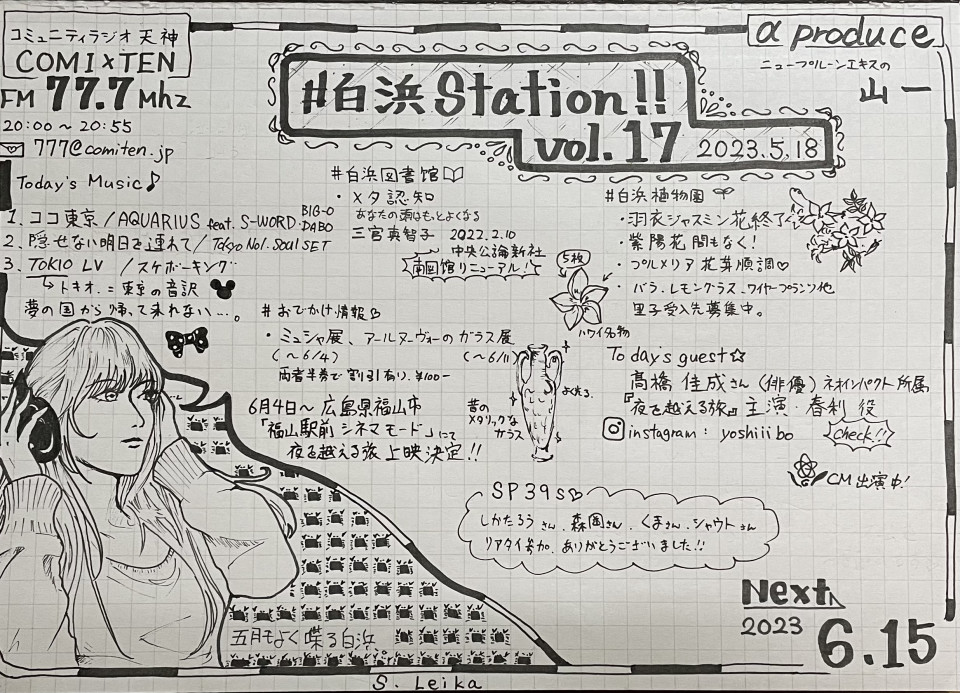 コミュニティラジオ天神
COMI×TEN
FM 77.7 Mhz
20:00~20:55
777@comiten.jp
α produce
ニュープルーンエキスの
山一
#白浜Station!!
vol.17 2023.5.18
Today's Music♪
1. ココ東京/AQUARIUS feat. S-WORD BIG-O DABO
2. 隠せない明日を連れて/Tokyo No1. Soul SET
3. TOKIO LV /スケボーキング
トキオ.=東京の音訳
夢の国から帰って来れない…。
#白浜図書館
・メタ認知
あなたの頭はもっとよくなる
三宮真智子 2022.2.10
中央公論新社
南図館リニューアル!
#白浜植物園
・羽衣ジャスミン花終了
・紫陽花間もなく!
・プルメリア花芽順調♡
・バラ.レモングラス.ワイヤープランツ他
里子受入先募集中。
5枚
ハワイ名物
#おでかけ情報
・ミュシャ展、アールヌーヴォーのガラス展
(~6/4) (~6/11)
両者半券で割引有り.¥100-
6月4日~広島県福山市
「福山駅前シネマモード」にて
夜を越える旅 上映決定!!
昔の
メタリックな
ガラス
よく光る.
Today's guest☆
髙橋佳成さん(俳優)ネオインパクト所属
『夜を越える旅』主演・春利役
instagram: yoshiiibo
Check!!
CM出演中!
SP39s♡
しかたろうさん.森園さん.くまさん.シャウトさん
リアタイ参加.ありがとうございました!!
五月もよく喋る白浜.
Next
2023 6.15
S. Leika